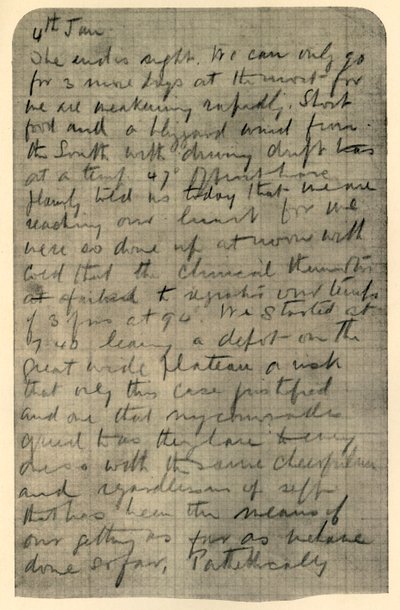 4th Jan
The end is in sight. We can only go
for 3 more days at the most for
we are weakening rapidly. Short
food and a blizzard wind from
the South with driving drift
at a temp 47° must have
plainly told us today that we are
reaching our limit for we
were so done up at noon with
cold that the clinical thermometer
failed to register our temps
of 3 of us at 94°. We started at
7 40 leaving a depot on the
great wide plateau a risk
that only this case justified
and one that my comrades
agreed to as they have every
one so with the same cheerfulness
and regardlessness of self
that has been the means of
our getting as far as we have
done so far. Pathetically